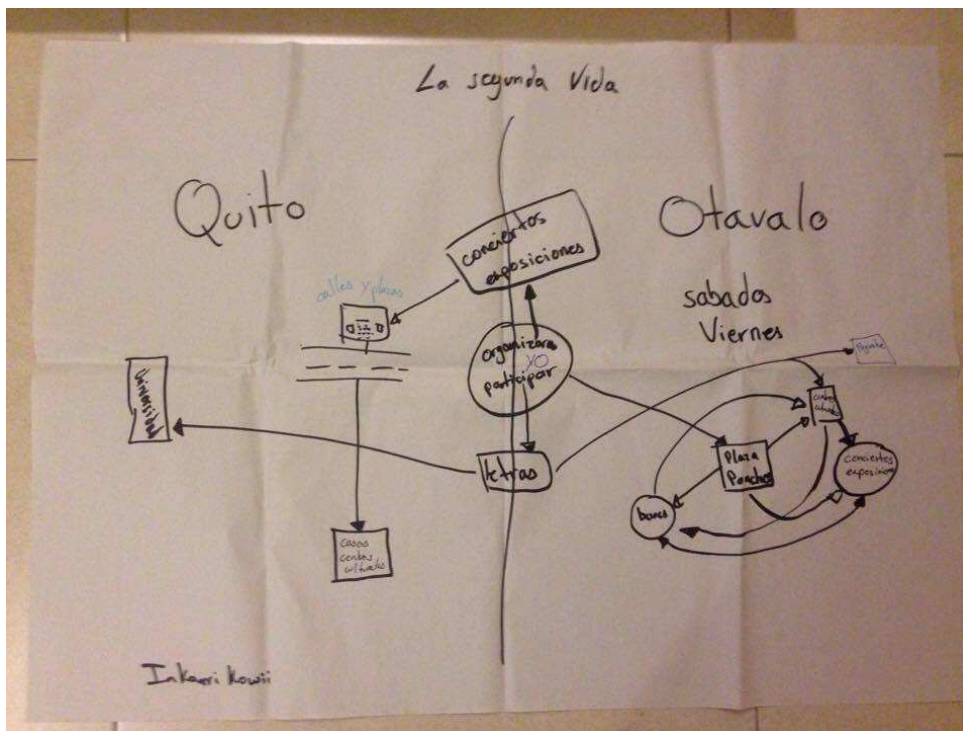 La segunda Vida
Quito
Otavalo
conciertos
exposiciones
calles y plazas
sabados
Viernes
organizar
YO
participar
Universidad
letras
Plaza
Ponchos
conciertos
exposicion
bares
casas
centros
culturales
Inkarri Kowii